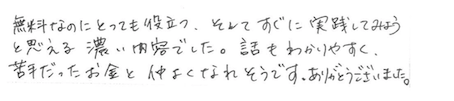 無料なのにとっても役立つ、そしてすぐに実践してみよう
と思える濃い内容でした。話もわかりやすく、
苦手だったお金と仲よくなれそうです。ありがとうございました。